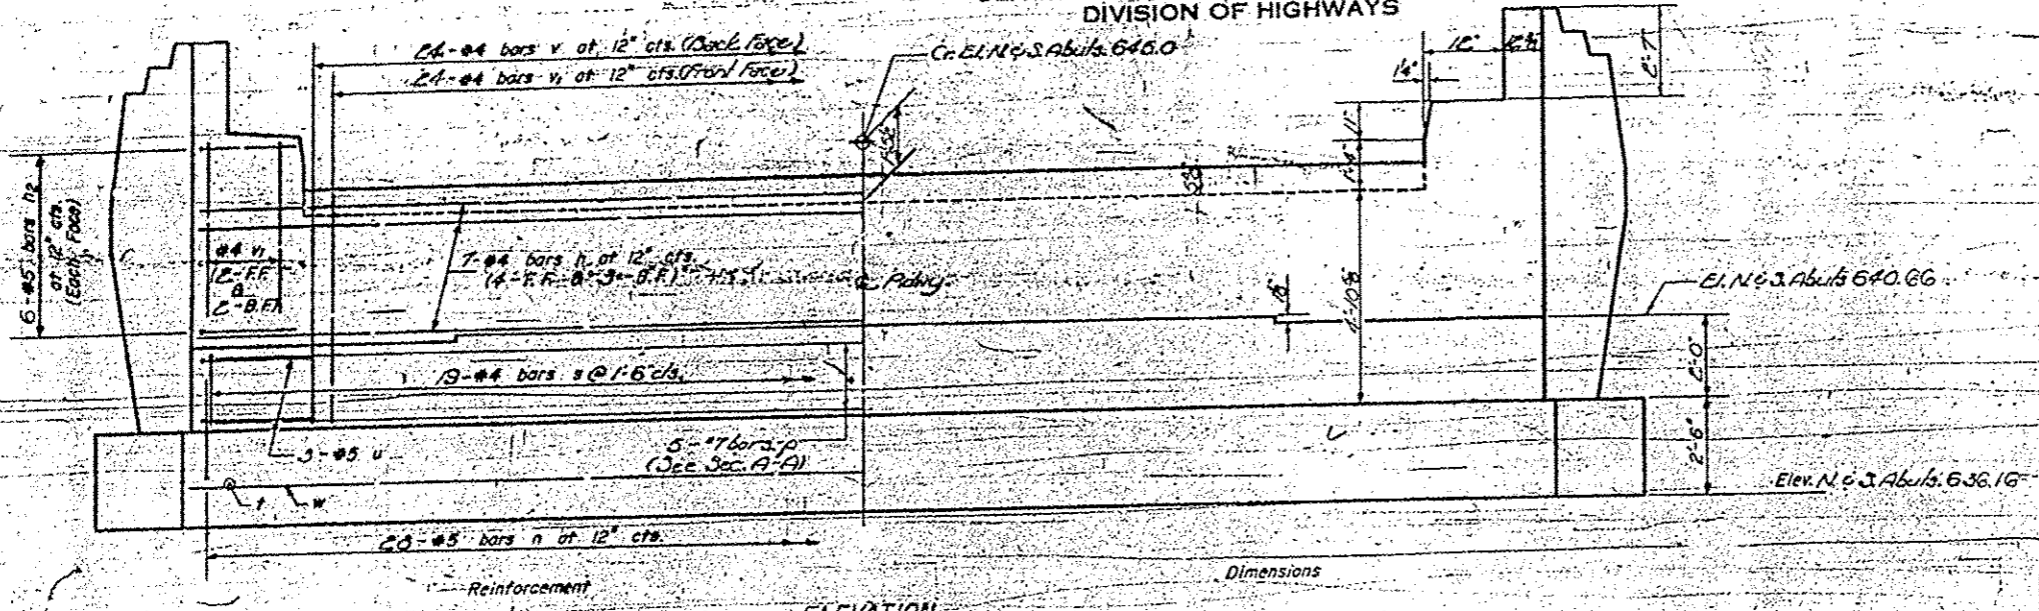 DIVISION OF HIGHWAYS
24-#4 bars v at 12" cts. (Back Face)
24-#4 bars v₁ at 12" cts. (Front Face)
Cr. El. N. & S. Abuts. 646.0
12"
1¼"
2'-7"
11"
1'-4"
6-#5 bars h₂
at 12" cts.
(Each Face)
#4 v₁
(2-F.F.
&
2-B.F.)
7-#4 bars h at 12" cts.
(4-F.F. & 3-B.F.)
℄ Rdwy.
4'-10⅝"
El. N. & S. Abuts 640.66
2'-0"
19-#4 bars s @ 1'-6" cts.
3-#5 u
5-#7 bars p
(See Sec. A-A)
2'-6"
Elev. N. & S. Abuts. 636.16
t
w
28-#5 bars n at 12" cts.
Reinforcement
Dimensions
ELEVATION